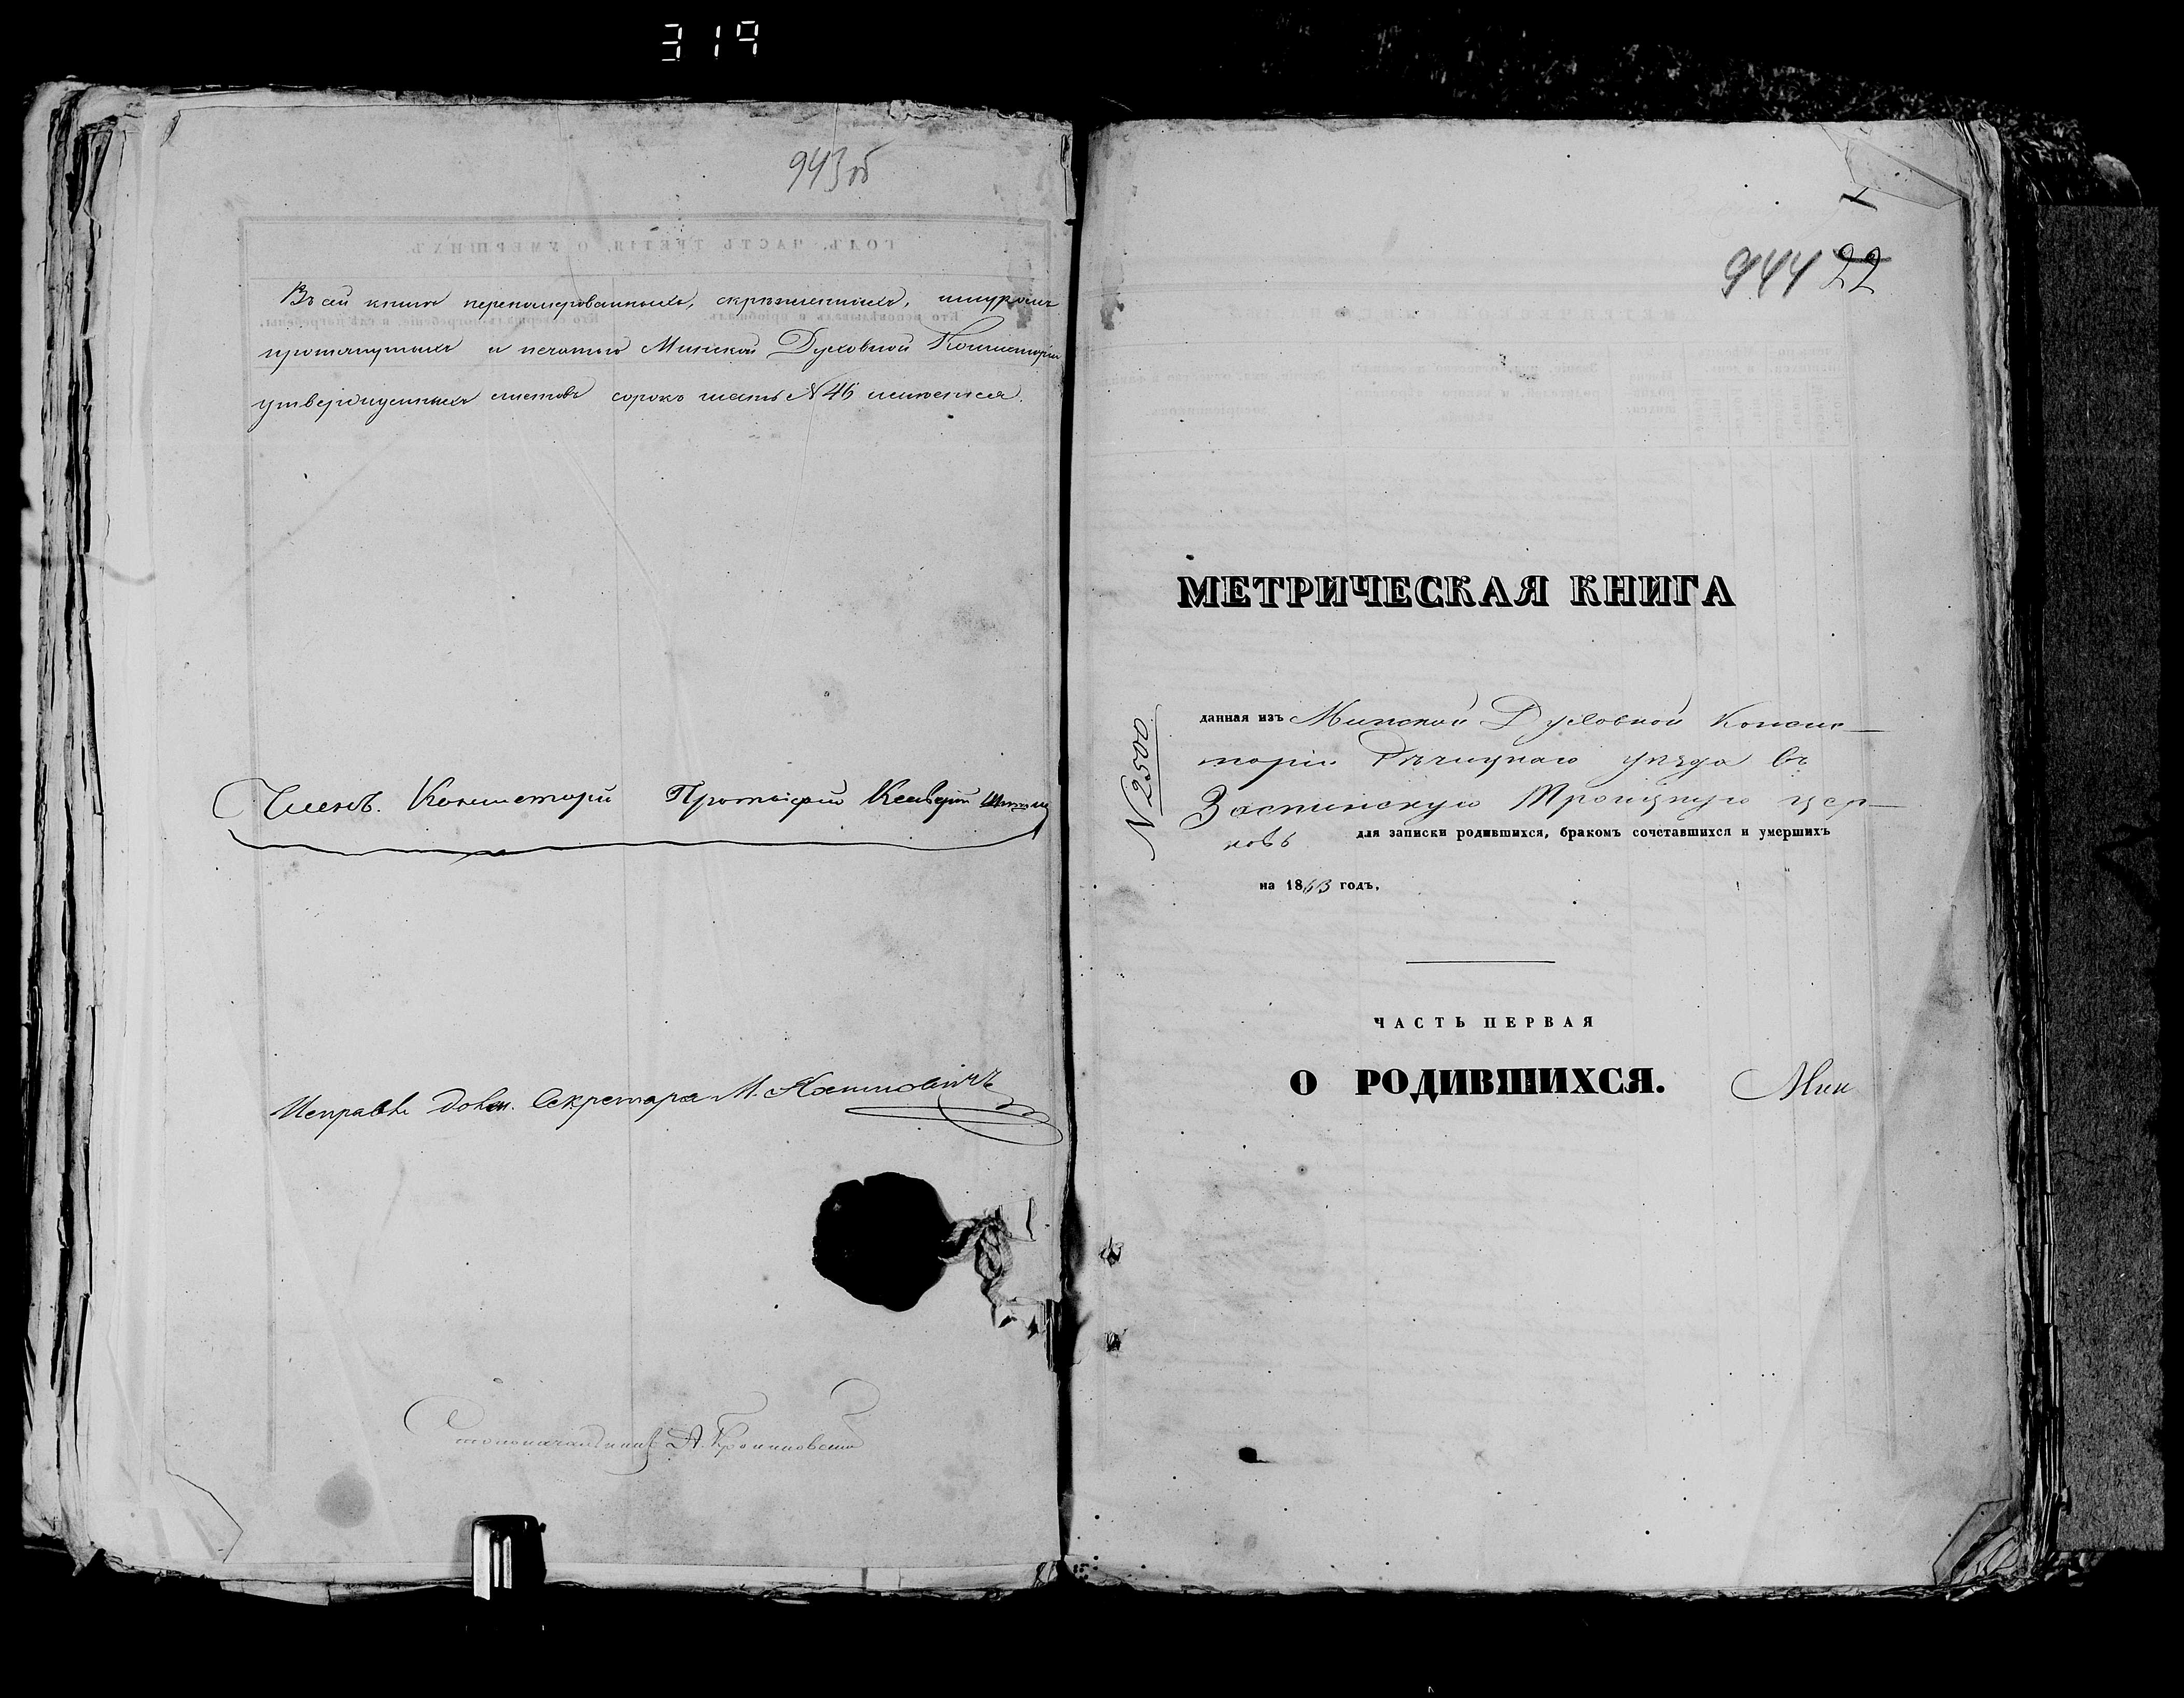 319
943об
Въ сей книге перенумерованныхъ, скрепленныхъ, шнуромъ
протянутыхъ и печатью Минской Духовной Консисторіи
утвержденныхъ листовъ сорокъ шесть N 46 имеется.
Членъ Консисторіи Протоіерей
Исправл. долж. Секретаря М.
Столоначальникъ А.
1
944 22
МЕТРИЧЕСКАЯ КНИГА
N 2500
данная изъ Минской Духовной Консис-
торіи Речицкаго уезда въ
Заспинскую Троицкую цер-
ковь для записки родившихся, бракомъ сочетавшихся и умершихъ
на 1863 годъ.
ЧАСТЬ ПЕРВАЯ
О РОДИВШИХСЯ.
Мин